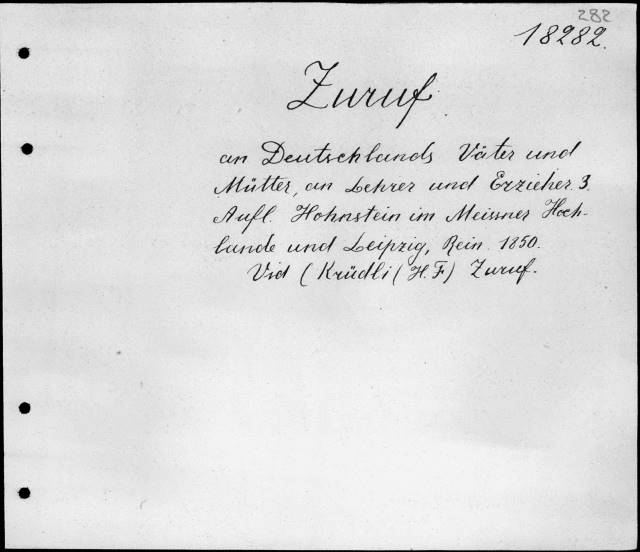 282
18282.
Zuruf
an Deutschlands Väter und
Mütter, an Lehrer und Erzieher. 3.
Aufl. Hohnstein im Meissner Hoch-
lande und Leipzig, Rein. 1850.
Vid (Krüdli (H. F.) Zuruf.